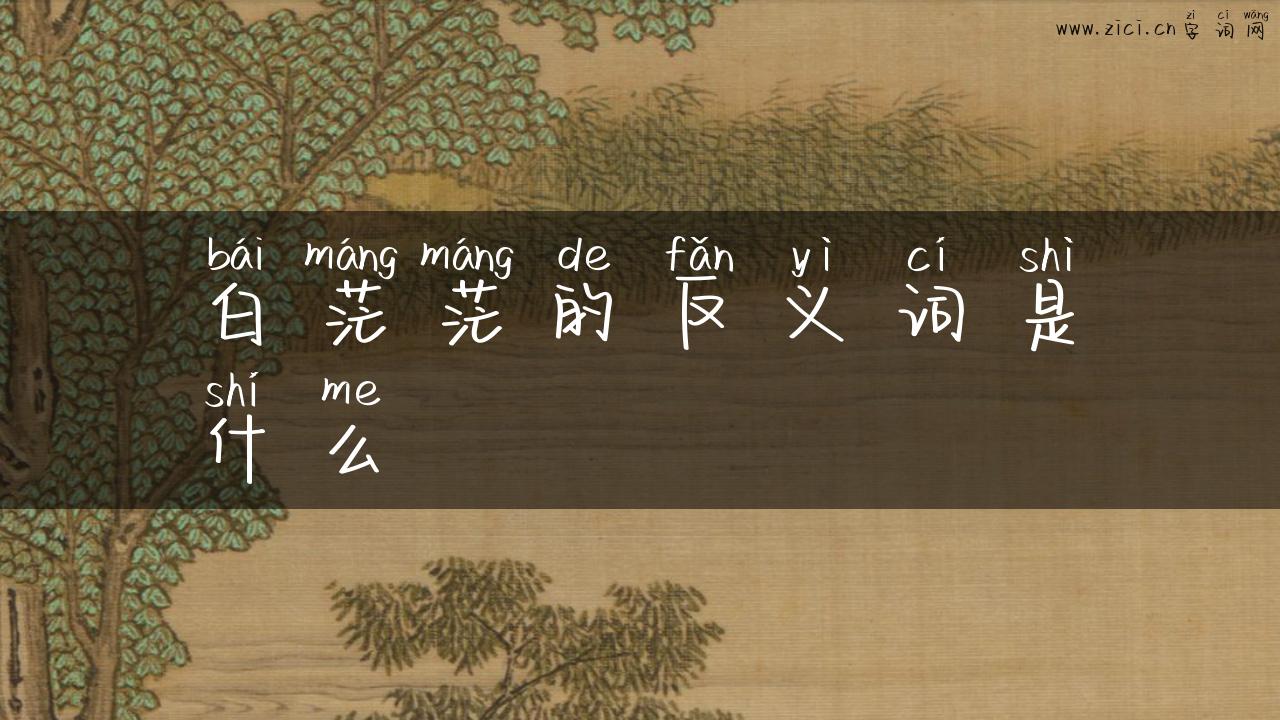 zì cí wǎng
www.zici.cn 字词网
bái máng máng de fǎn yì cí shì
白茫茫的反义词是
shí me
什么